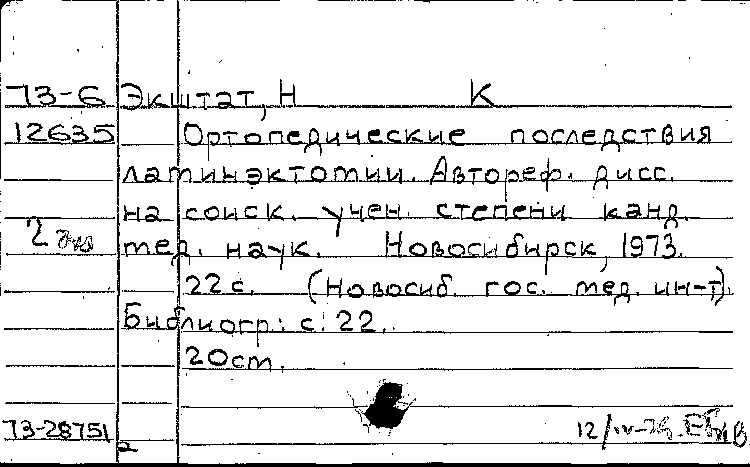 73-6 Экштат, Н К
12635 Ортопедические последствия
латинэктотии. Автореф. дисс.
на соиск. учен. степени канд.
2 экз тед. наук. Новосибирск, 1973.
22 с. (Новосиб. гос. тед. ин-т).
Библиогр: с. 22.
20 ст.
73-28751 2 12/